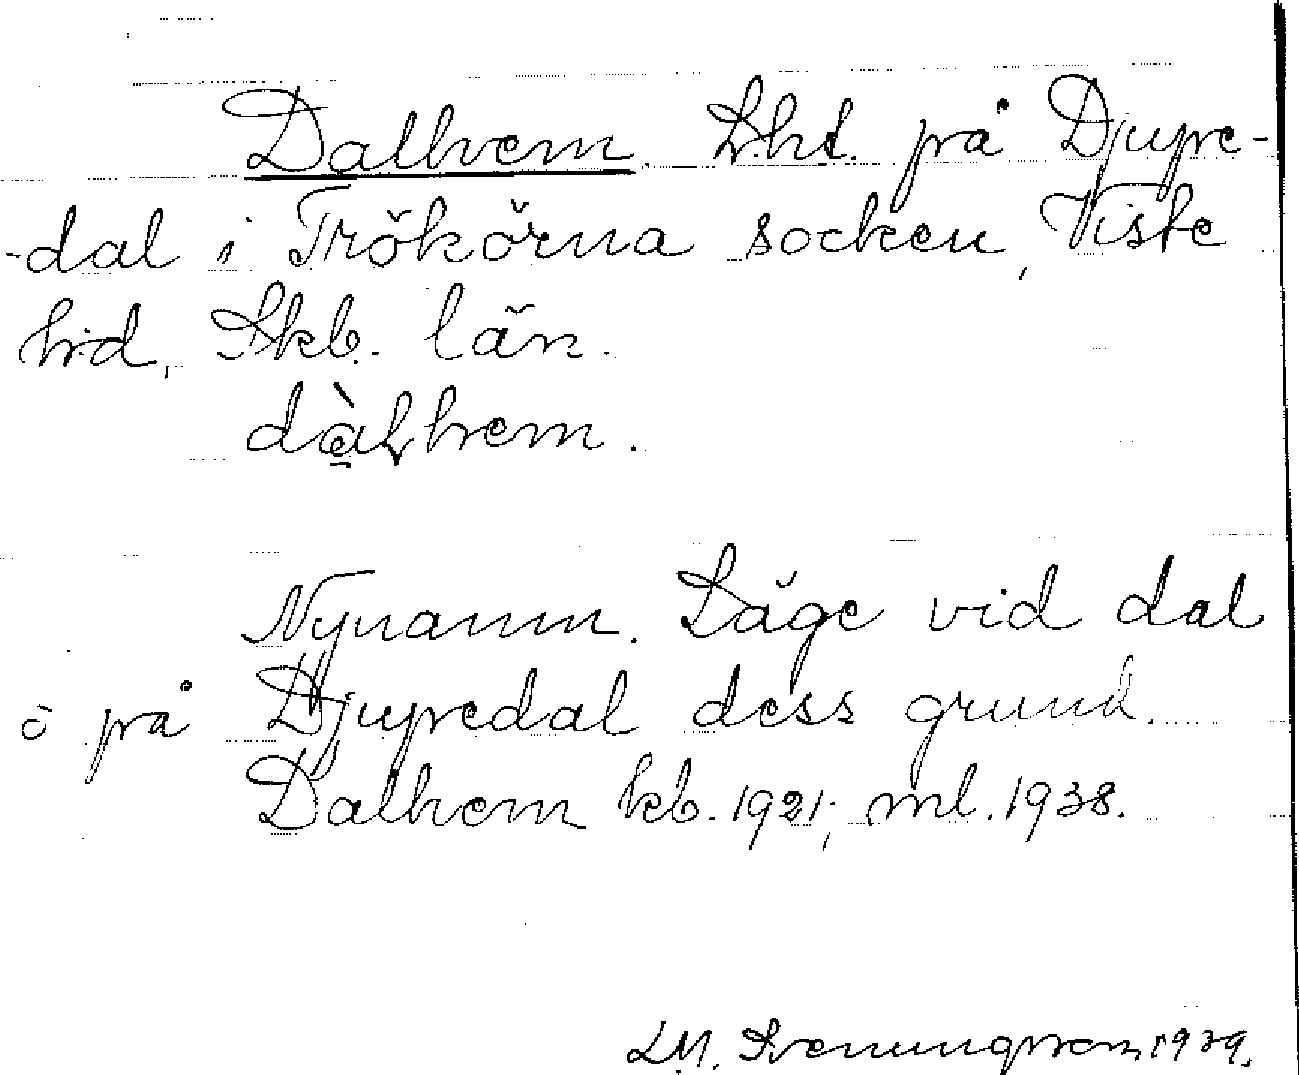 Dalhem. Lht. på Djupe-
-dal i Trökörna socken, Viste
hd, Skb. län.
dàꞭhem.
Nynamn. Läge vid dal
o på Djupedal dess grund.
Dalhem kb. 1921; ml. 1938.
LM. Svenungsson 1939.